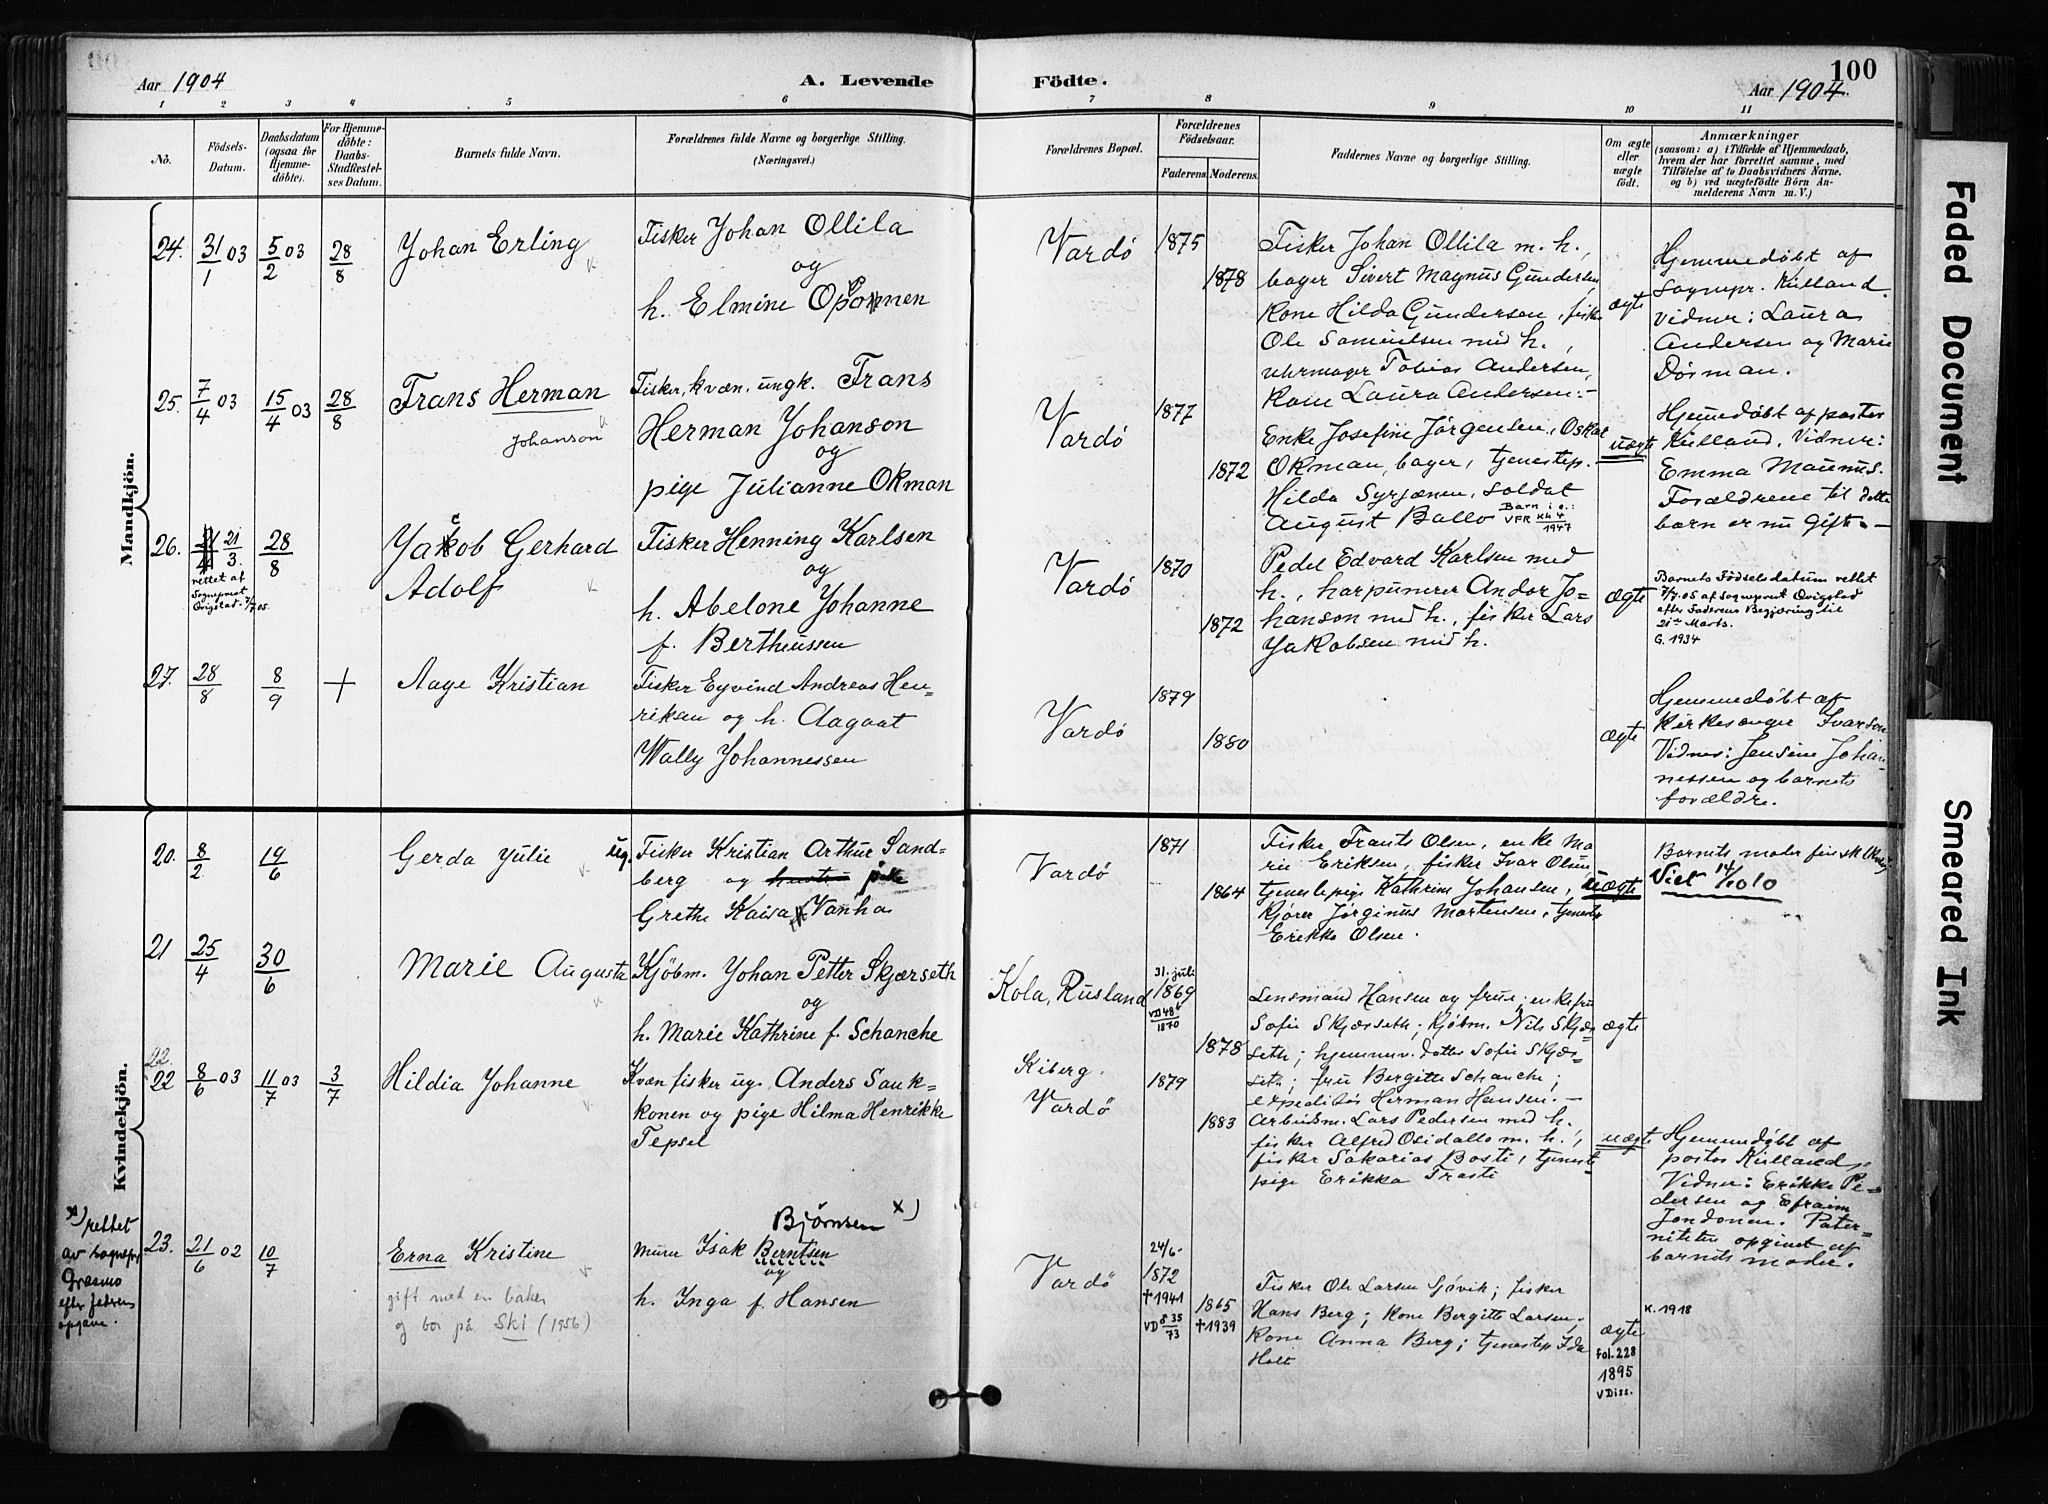 Aar 1904
A. Levende
1 2 3 4 5 6
No.
Födsels-
Datum.
Daabsdatum
(ogsaa for
Hjemme-
döbte).
For Hjemme-
döbte:
Daabs-
Stadfæstel-
ses Datum.
Barnets fulde Navn.
Forældrenes fulde Navne og borgerlige Stilling.
(Næringsvei.)
Mandkjön.
24. 31/1 03 5/2 03 28/8
Johan Erling
Fisker Johan Ollila
og
h. Elmine Oponen
25. 7/4 03 15/4 03 28/8
Frans Herman
Johanson
Fisker, kvæn, ungk. Frans
Herman Johanson
og
pige Julianne Okman
26. 21/3. 28/8
rettet af
Sogneprest
Qvigstad. 7/7 05.
Jacob Gerhard
Adolf
Fisker Henning Karlsen
og
h. Abelone Johanne
f. Bertheussen
27. 28/8 8/9 +
Aage Kristian
Fisker Eyvind Andreas Hen-
riksen og h. Aagaat
Wally Johannessen
Kvindekjön.
20. 8/2 19/6
Gerda Julie
ug. Fisker Kristian Arthur Sand-
berg og pike
Grethe Kaisa Vanha
21 25/4 30/6
Marie Augusta
Kjöbm. Johan Petter Skjærseth
og
h. Marie Kathrine f. Schanche
22.
22 8/6 03 11/7 03 3/7
Hildia Johanne
Kvæn fisker ug. Anders Sauk-
konen og pige Hilma Henrikke
Tepsel
x) rettet
av sognepr.
Græsmo
efter faderens
opgave.
23. 21/6 02 10/7
Erna Kristine
gift med en baker
og bor på Ski (1956)
Björnsen x)
murer Isak Berntsen
og
h. Inga f. Hansen
100
Födte.
Aar 1904.
7 8 9 10 11
Forældrenes Bopæl.
Forældrenes
Födselsaar.
Faderens. Moderens.
Faddernes Navne og borgerlige Stilling.
Om ægte
eller
uægte
födt.
Anmærkninger
(saasom: a) i Tilfælde af Hjemmedaab,
hvem der har forrettet samme, med
Tilföielse af to Daabsvidners Navne.
og b) ved uægtefödte Börn An-
melderens Navn m. V.)
Vardö 1875
1878
Fisker Johan Ollila m. h.,
bager Sivert Magnus Gundersen,
Kone Hilda Gundersen, fisker
Ole Samuelsen med h.,
uhrmager Tobias Andersen,
Kone Laura Andersen:-
ægte
Hjemmedöbt af
Sognepr. Kielland.
Vidner: Laura
Andersen og Marie
Dörman.
Vardö 1877
1872
Enke Josefine Jörgensen, Oskar
Okman, bager, tjenestep.
Hilda Syrjænen, soldat
August Ballo
Barn i e.:
VFR Kh 4
1947
uægte
Hjemmedöbt af pastor
Kielland. Vidner:
Emma Maunus.
Forældrene til dette
barn er nu gift. -
Vardö 1870
1872
Pedel Edvard Karlsen med
h., harpunerer Andor Jo-
hanson med h., fisker Lars
Jakobsen med h.
ægte
Barnets Födselsdatum rettet
7/7.05 af Sogneprest Qvigstad
efter Faderens Begjæring til
21de Marts.
G. 1934
Vardö 1879
1880
ægte
Hjemmedöbt af
Kirkesanger Ivarson
Vidner: Jensine Johan-
nessen og barnets
forældre.
Vardö 1871
1864
Fisker Frants Olsen, enke Ma
rie Eriksen, fisker Ivar Olsen
tjenestepige Kathrine Johansen,
Kjörer Jörginus Mortensen, tjenestep
Erikka Olsen.
uægte
Barnets moder
Viet 14/10 10
Kola, Rusland
31. juli
1869
VD 48b
1870
1878
Lensmand Hansen og frue; enkefru
Sofie Skjærseth; Kjöbm. Nils Skjær-
seth; hjemmev. datter Sofie Skjær-
seth; fru Bergitte Schanche;
expeditör Herman Hansen. -
ægte
Kiberg.
Vardö
1879
1883
Arbeidsm. Lars Pedersen med h.
fisker Alfred Osidallo m. h.,
fisker Sakarias Bosti, tjeneste-
pige Erikka Trasti
uægte
Hjemmedöbt af
pastor Kielland.
Vidner: Erikke Pe-
dersen og Efraim
Jondonen. Pater-
niteten opgivet af
barnets moder.
Vardö
24/6-
1872
†1941
VD S 35
73
1865
†1939
Fisker Ole Larsen Sjövik; fisker
Hans Berg; Kone Bergitte Larsen;
Kone Anna Berg; tjenestep. Ida
Holt
ægte
fol. 228
1895
V Diss.
K. 1918
Faded Document
Smeared Ink